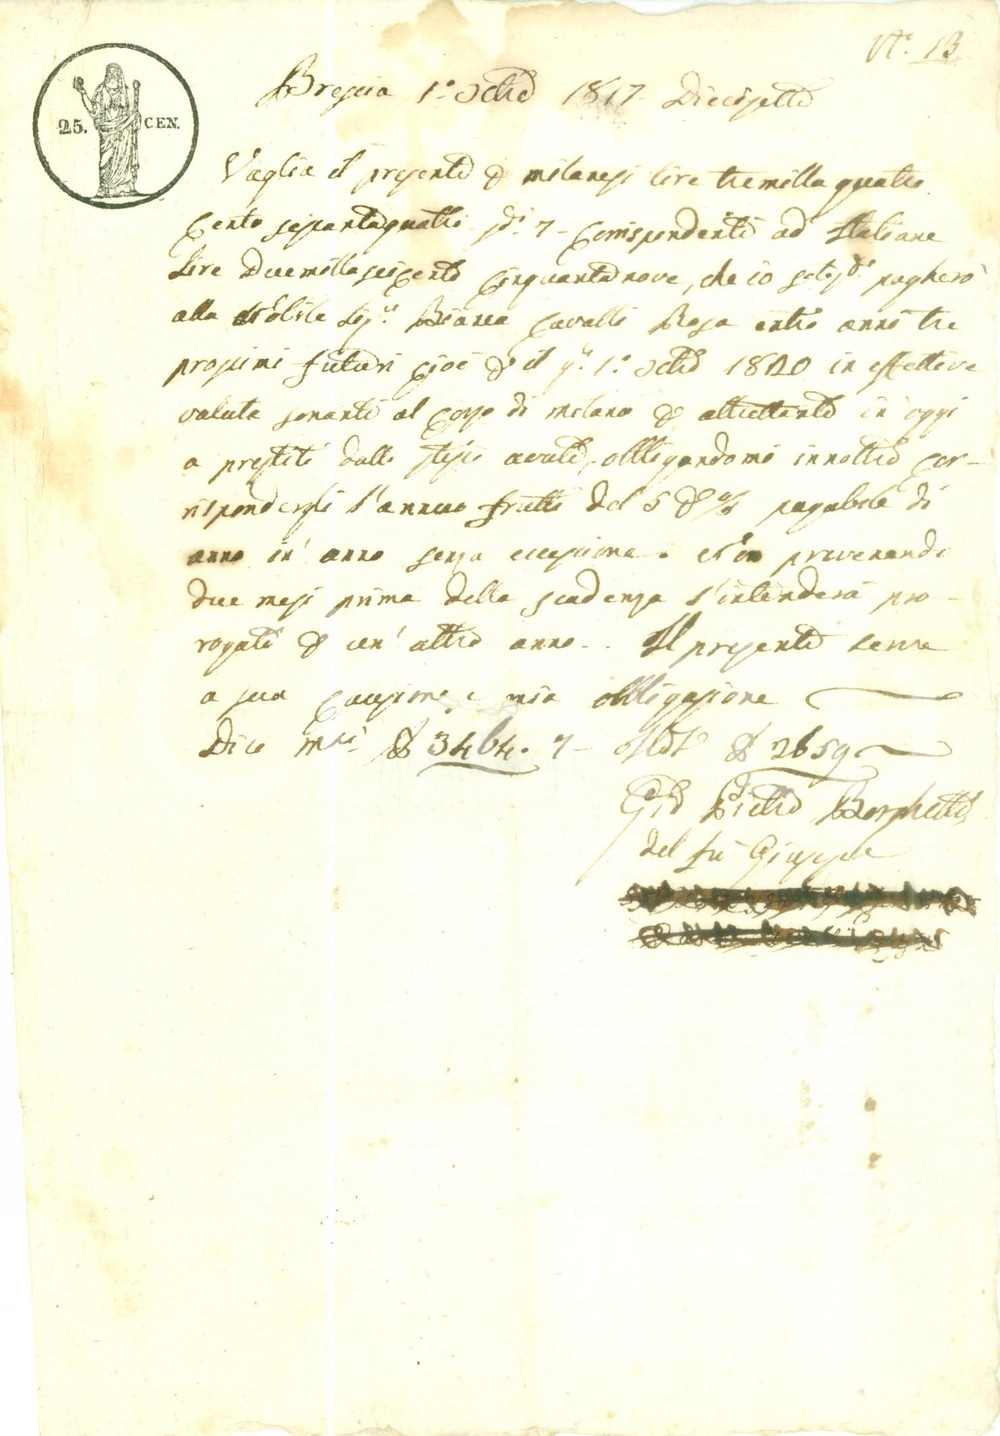 N.° 13
Brescia 1.° Ottb 1817 Diecisette
25. CEN.
Vaglia il presente p milanesi lire tremilla quatro
cento sessantaquattro sdi 7 - corrispondenti ad Italiane
Lire Duemillaseicento cinquantanove, che io sottos. pagherò
alla Nobile Sig.ª Bianca Cavalli Rosa entro anni tre
prossimi futuri cioè p il g. 1.° Ottb 1820 in effettiva
valuta sonante al corso di milano p altrettante in oggi
a prestito dallo stesso avute, obbligandomi innoltre cor-
rispondergli l'annuo frutto del 5 p % pagabile di
anno in anno senza eccezione. Non prevenendo
due mesi prima della scadenza s'intenderà pro-
rogato p un' altro anno. Il presente serve
a sua cauzione e mia obbligazione
Dico 3464. 7 - 2659
Pietro Borghetti
del fu Giuseppe